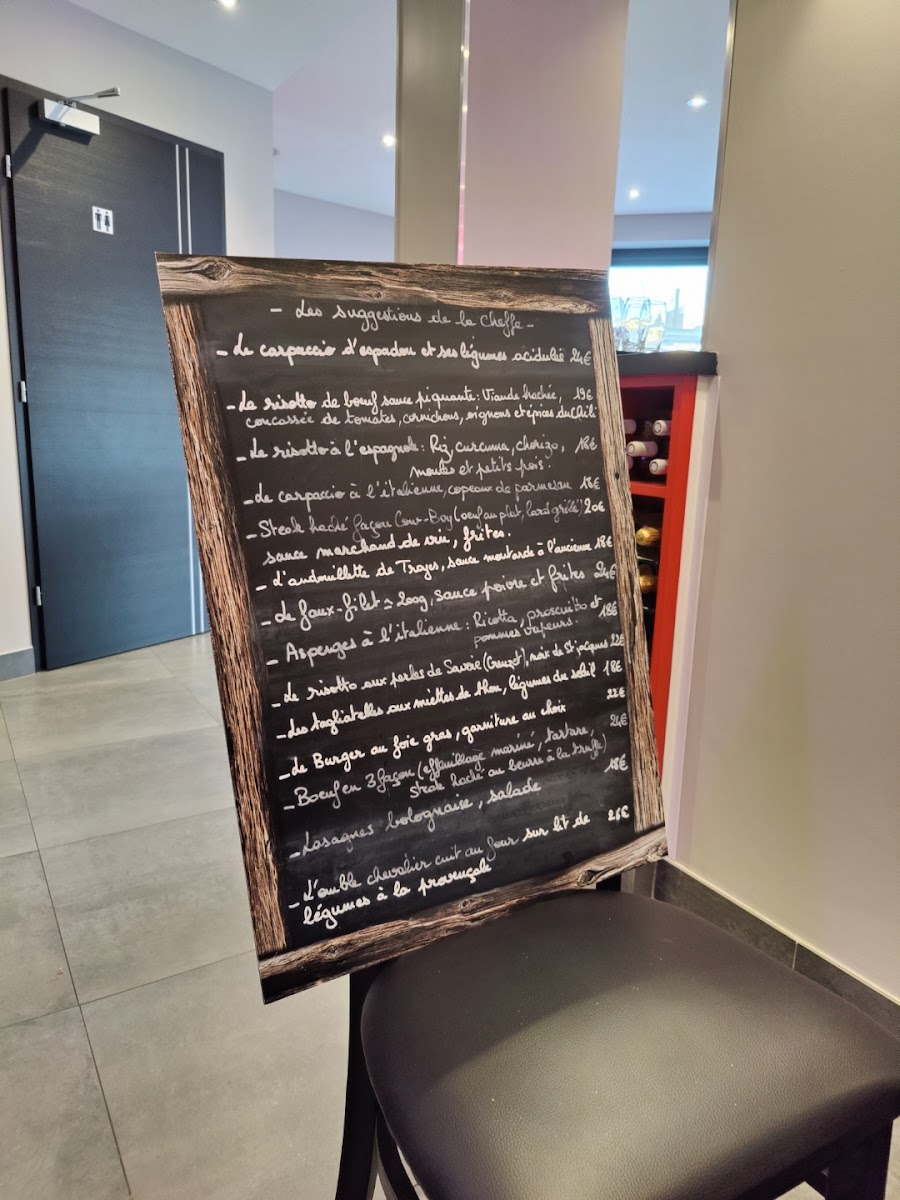 - Les suggestions de la Cheffe -
- Le carpaccio d'espadon et ses légumes acidulés 24€
- Le risotto de bœuf sauce piquante : Viande hachée, 19€
concassée de tomates, cornichons, oignons et épices du Chili
- Le risotto à l'espagnole : Riz, curcuma, chorizo, 18€
moules et petits pois.
- Le carpaccio à l'italienne, copeaux de parmesan 18€
- Steak haché façon Cow-Boy (oeuf au plat, lard grillé) 20€
sauce marchand de vin, frites.
- L'andouillette de Troyes, sauce moutarde à l'ancienne 18€
- Le faux-filet ≃ 200g, sauce poivre et frites 24€
- Asperges à l'italienne : Ricotta, proscuitto et 18€
pommes vapeurs.
- Le risotto aux perles de Savoie (Crozet), noix de St jacques 22€
- Les tagliatelles aux miettes de thon, légumes du soleil 18€
- Le Burger au foie gras, garniture au choix 22€
- Boeuf en 3 façon (effeuillage mariné, tartare, 24€
steak haché au beurre à la truffe)
- Lasagnes bolognaise, salade 18€
- L'omble chevalier cuit au four sur lit de 26€
légumes à la provençale